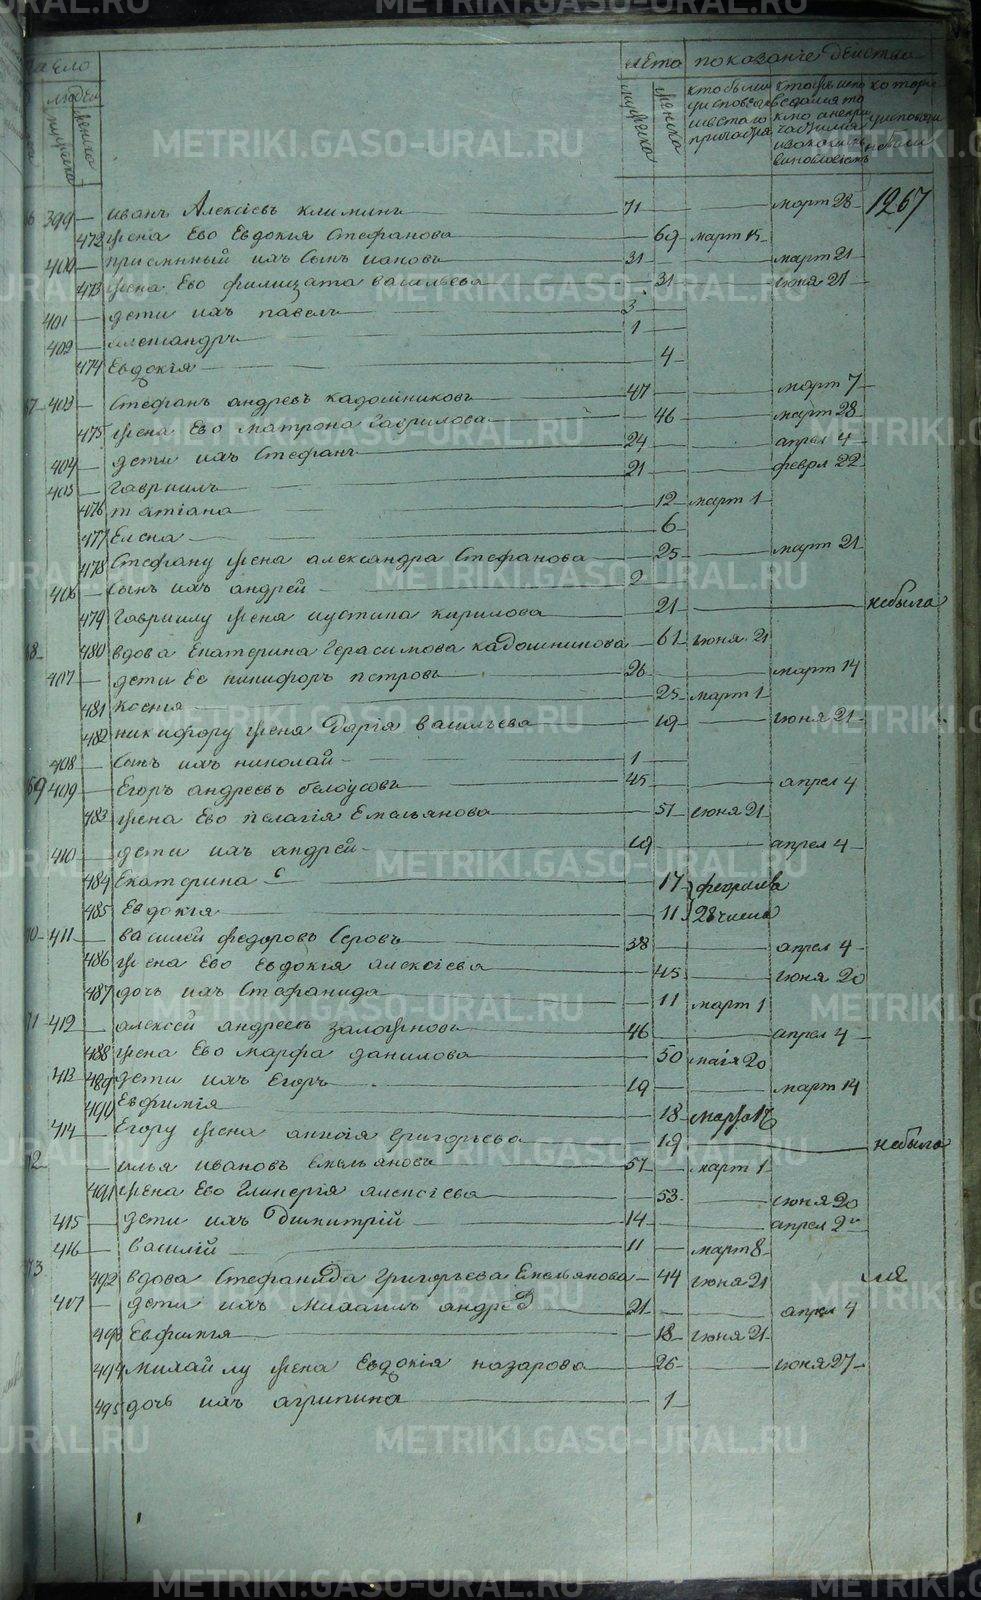 число
людей
мужеска
женска
лета
мужеска
женска
показание действа
кто были
у исповеди
и св таго
причастия
которые
у исповеди
небыли
66 399 Иванъ Алексіевъ Климинъ 71 март 28 1267
472 жена Ево Евдокія Стефанова 69 март 15
400 приемнный ихъ Сынъ иаковъ 31 март 21
473 жена Ево филицата васильева 31 июня 21
401 дети ихъ павелъ 3
402 александръ 1
474 Евдокія 4
67 403 Стефанъ андреевъ кадошниковъ 47 март 7
475 жена Ево матрона гаврилова 46 март 28
404 дети ихъ Стефанъ 24 апрел 4
405 гавриилъ 21 феврл 22
476 татіана 12 март 1
477 Елена 6
478 Стефану жена александра Стефанова 25 март 21
406 сынъ ихъ андрей 2
479 гавриилу жена иустина кирилова 21 небыла
68 480 вдова Екатерина герасимова кадошникова 61 июня 21
407 дети Ее никифоръ петровъ 26 март 14
481 Ксенія 25 март 1
482 никифору жена Дарія васильева 19 июня 21
408 сынъ ихъ николай 1
69 409 Егоръ андреевъ белоусовъ 45 апрел 4
483 жена Ево пелагія Емельянова 51 июня 21
410 дети ихъ андрей 19 апрел 4
484 Екатерина 17 февраля
485 Евдокія 11 28 числа
70 411 василей федоровъ Серовъ 38 апрел 4
486 жена Ево Евдокія алексіева 45 июня 20
487 дочь ихъ Стефанида 11 март 1
71 412 алексей андреевъ заложновъ 46 апрел 4
488 жена Ево марфа данилова 50 маія 20
413 489 дети ихъ Егоръ 19 март 14
490 Евфимія 18 марта 17
414 Егору жена григорьева 19 небыла
72 илья ивановъ емельяновъ 57 март 1
491 жена Ево гликерія алексіева 53 июня 20
415 дети ихъ Димитрій 14 апрел 2
416 василій 11 март 8
73 492 вдова Стефанида григорьева Емельянова 44 июня 21
417 дети ихъ михаилъ 21 апрел 4
493 Евфимія 18 июня 21
494 михайлу жена Евдокія назарова 26 июня 27
495 дочь ихъ агрипина 1
METRIKI.GASO-URAL.RU